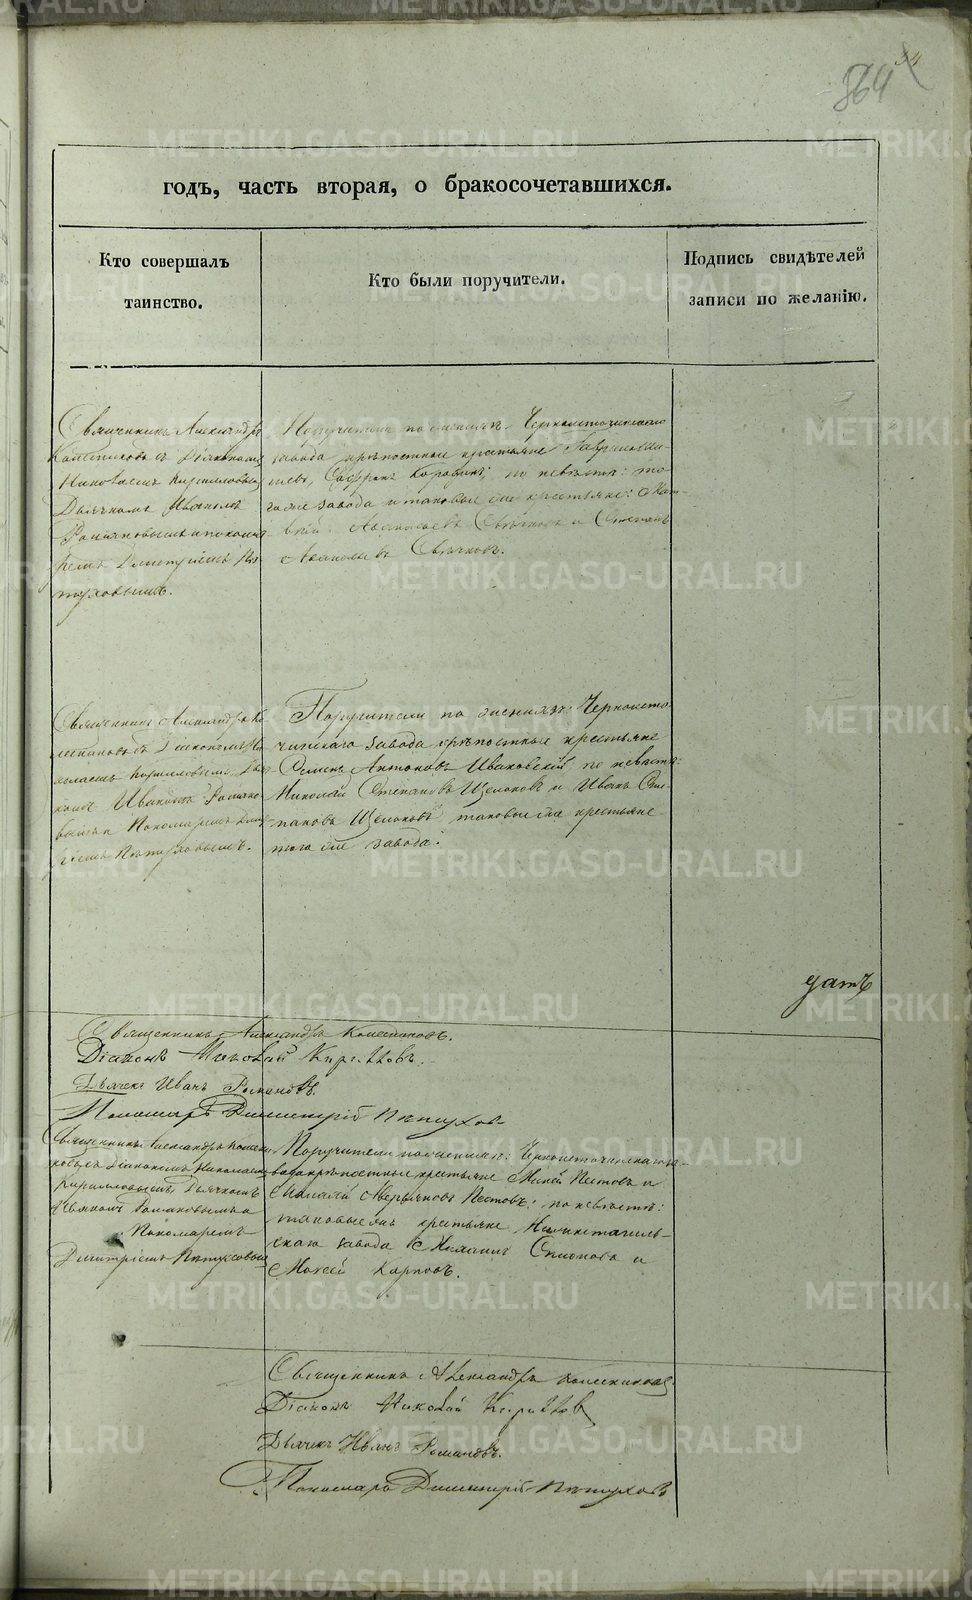 34
364
годъ, часть вторая, о бракосочетавшихся.
Кто совершалъ
таинство.
Кто были поручители.
Подпись свидѣтелей
записи по желанію.
Священникъ Александръ
Колесниковъ съ Діакономъ
Николаемъ Кирилловымъ
Дьячкомъ Иваномъ
Романовымъ и понома
ремъ Димитріемъ Пѣ
туховымъ.
Поручители по женихѣ: Черноисточинскаго
завода крѣпостные крестьяне
по невѣстѣ: то
гоже завода и таковые же крестьяне: Мат
вѣй
Священникъ Александръ Ко
лесниковъ съ Діакономъ Ни
колаемъ Кирилловымъ, Дья
комъ Иваномъ Романо
вымъ и Пономаремъ Дмит
ріемъ Пѣтуховымъ.
Поручители по женихѣ: Черноисто
чинскаго завода крѣпостные крестьяне
Семенъ Антоновъ Ивановскій, по невѣстѣ:
Николай Степановъ Щелоковъ и Иванъ Сте
пановъ Щелоковъ таковые же крестьяне
того же завода.
датъ
Священникъ Александръ Колесниковъ.
Діаконъ Николай Кирилловъ.
Дьячекъ Иванъ Романовъ.
Пономарь Димитрій Пѣтуховъ
Священникъ Александръ Колесни
ковъ съ Діакономъ Николаемъ
Кирилловымъ, Дьячкомъ
Иваномъ Романовымъ и
Пономаремъ
Димитріемъ Пѣтуховымъ
Поручители по женихѣ: Черноисточинскаго за
вода крѣпостные крестьяне Пестовъ и
Пестовъ; по невѣстѣ:
таковые же крестьяне Нижнетагиль
скаго завода и
Моисей Карповъ.
Священникъ Александръ Колесниковъ
Діаконъ Николай Кирилловъ
Дьячекъ Иванъ Романовъ.
Пономарь Димитрій Пѣтуховъ
METRIKI.GASO-URAL.RU